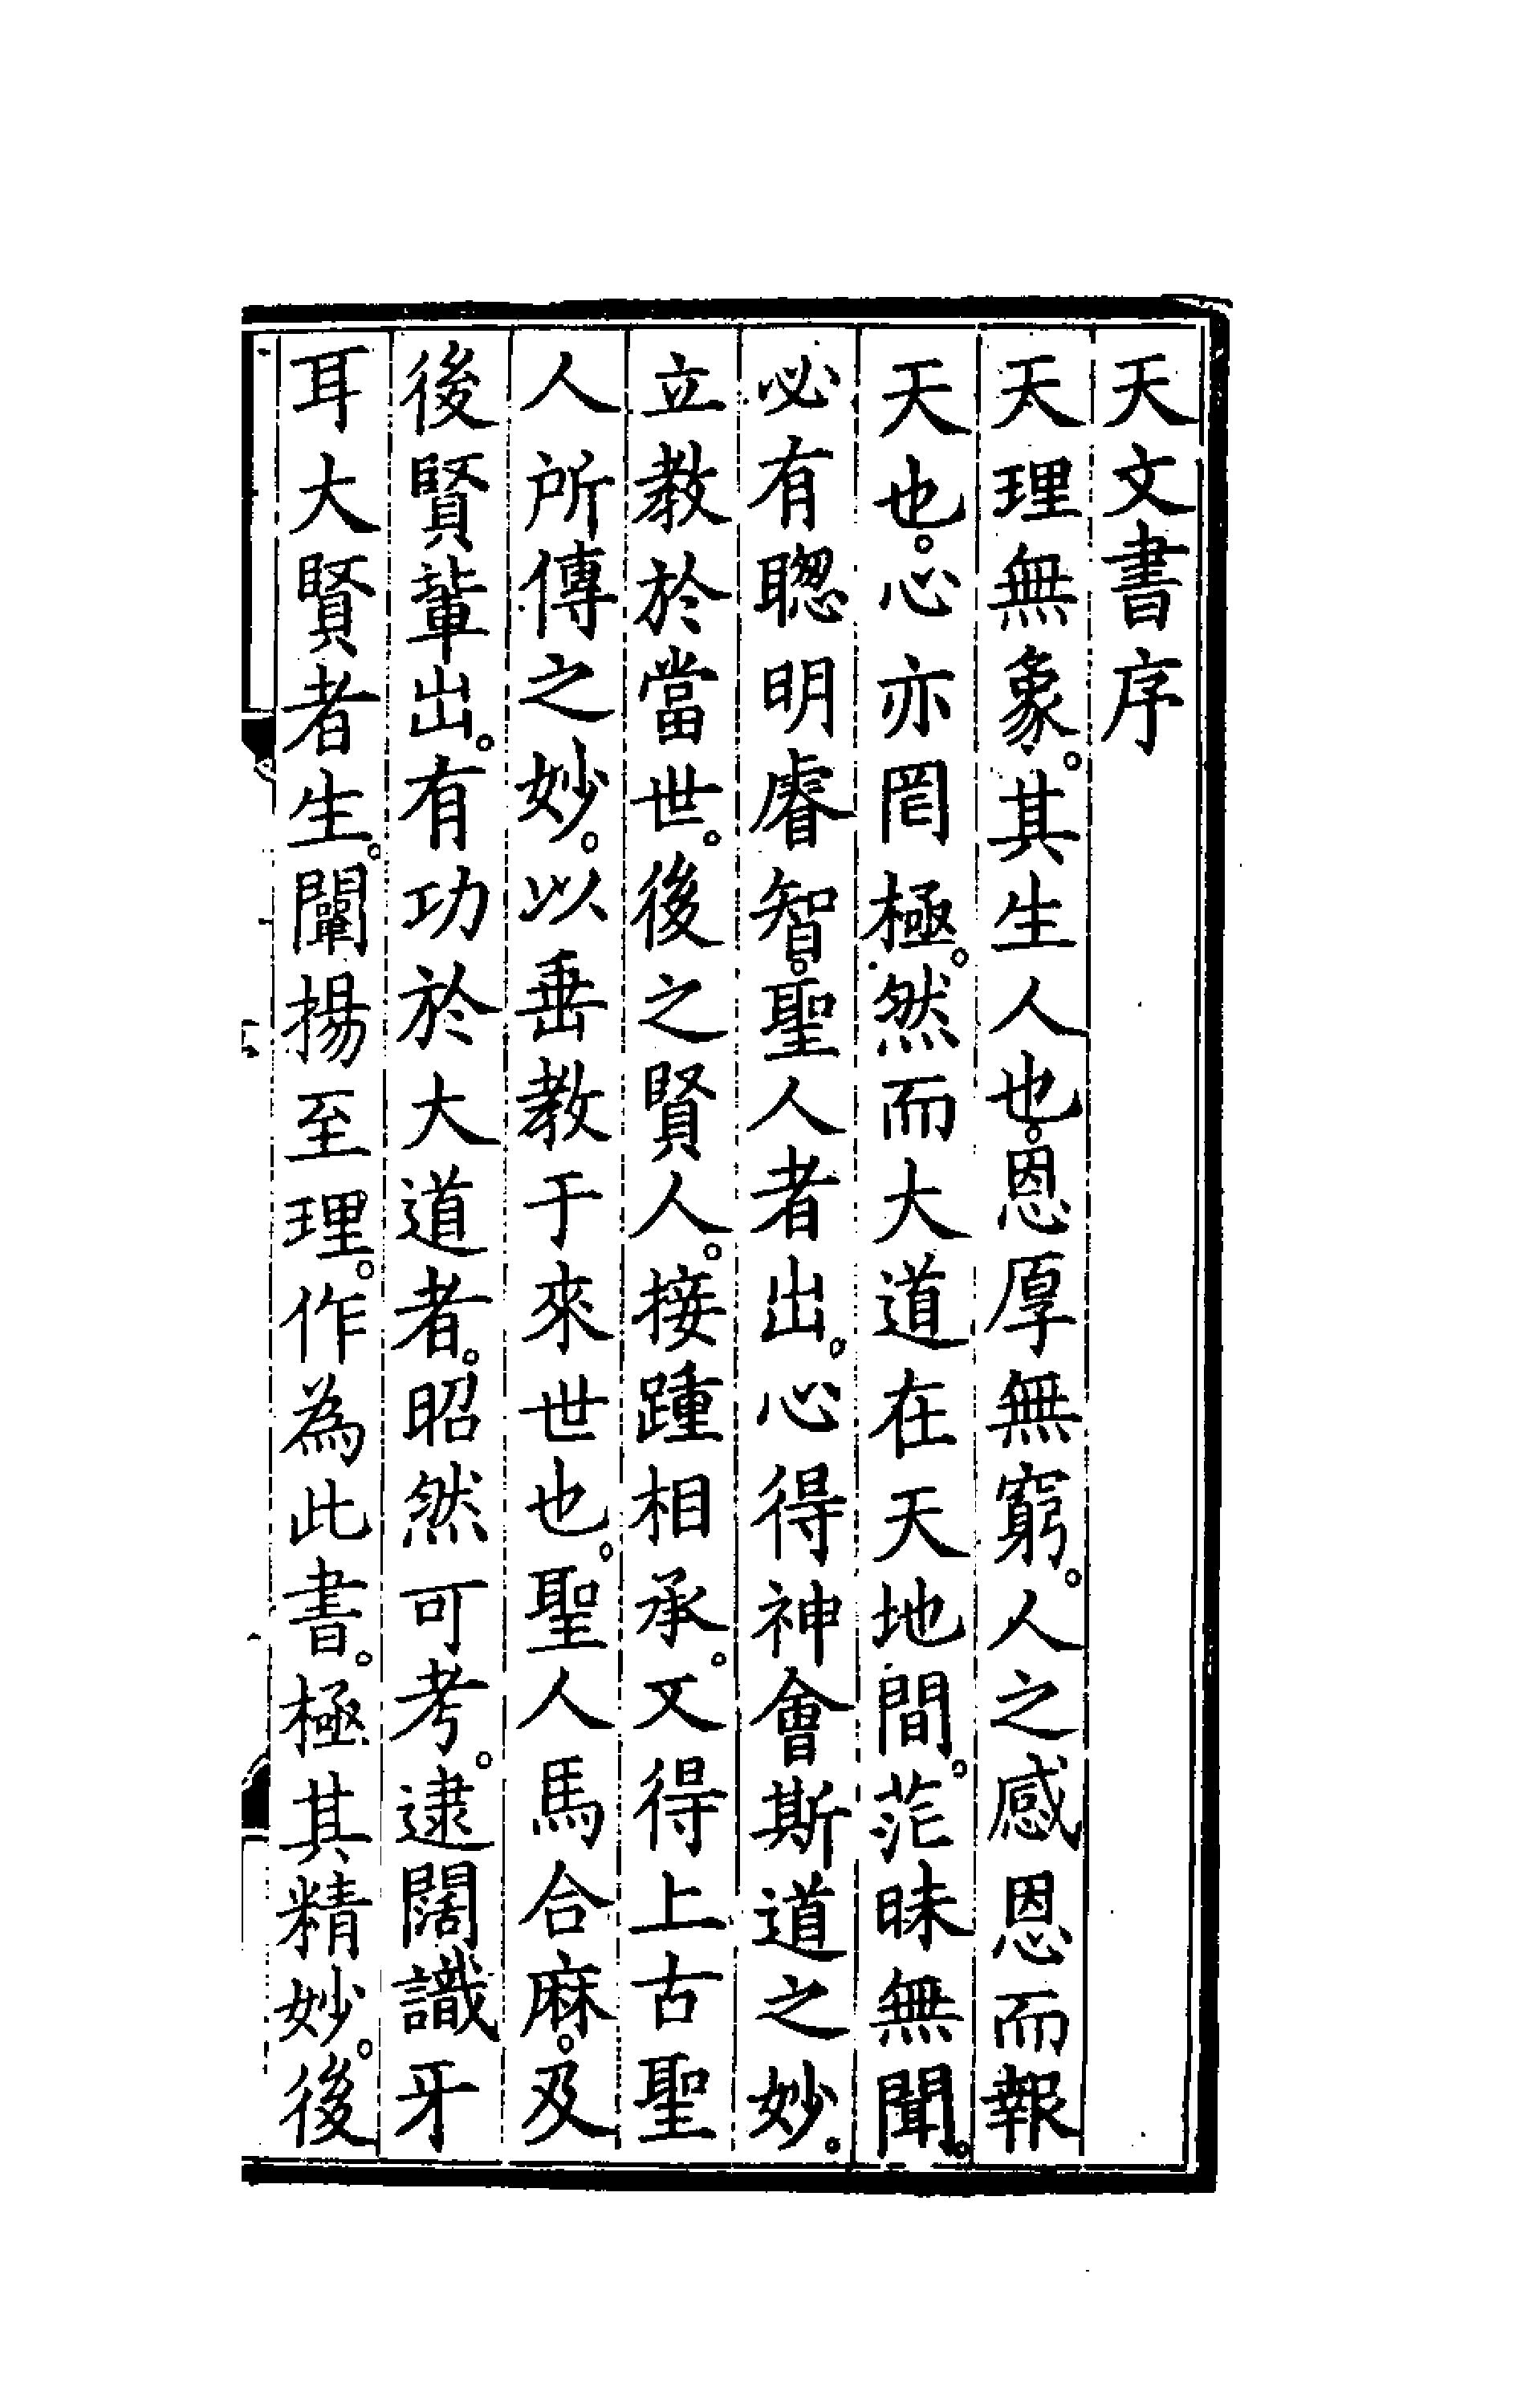 天文書序
天理無象。其生人也。恩厚無窮。人之感恩而報
天也。心亦罔極。然而大道在天地間。茫昧無聞。
必有聦明睿智。聖人者出。心得神會斯道之妙。
立教於當世。後之賢人。接踵相承。又得上古聖
人所傳之妙。以垂教于來世也。聖人馬合麻。及
後賢輩出。有功於大道者。昭然可考。逮闊識牙
耳大賢者生。闡揚至理。作為此書。極其精妙。後